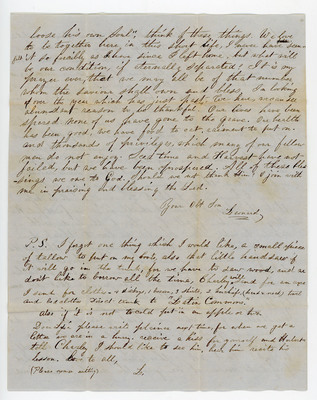 loose his own soul". think of these things. We love
to be together here in this short life, I never have seen
it so fully as I have since I left home, but what will
be our condition, if eternally separated? It is my
prayer ever, that we may all be of that number
whom the Saviour shall own and bless. In looking
over the year which has just past, we have
abundant reason to be thankful. Our lives have been
spared. None of us have gone to the grave. Our health
has been good, we have food to eat, raiment to put on
and thousands of privileges, which many of our fellow
men do not enjoy. Seed time and Harvest have not
failed, but we have been prospered. All of these bless
ings we owe to God. Should we not then join with
me in praising and blessing the Lord.
Your Aff Son
Leonard.
P.S. I forgot one thing which I would like, a small piece
of tallow to put on my boots, also that little hand saw if
it will go in the trunk, for we have to saw wood, and we
don't like to borrow all the time, Charley will find an axe
I send for
and Latin Commons.
also if it is not to cold put in an apple or two.
please write any time, for when we get a
letter we are in a hurry. receive a kiss for yourself and
tell Charley I should like to see him, hear him recite his
lesson. Love to all,
(Please excuse writing) L.